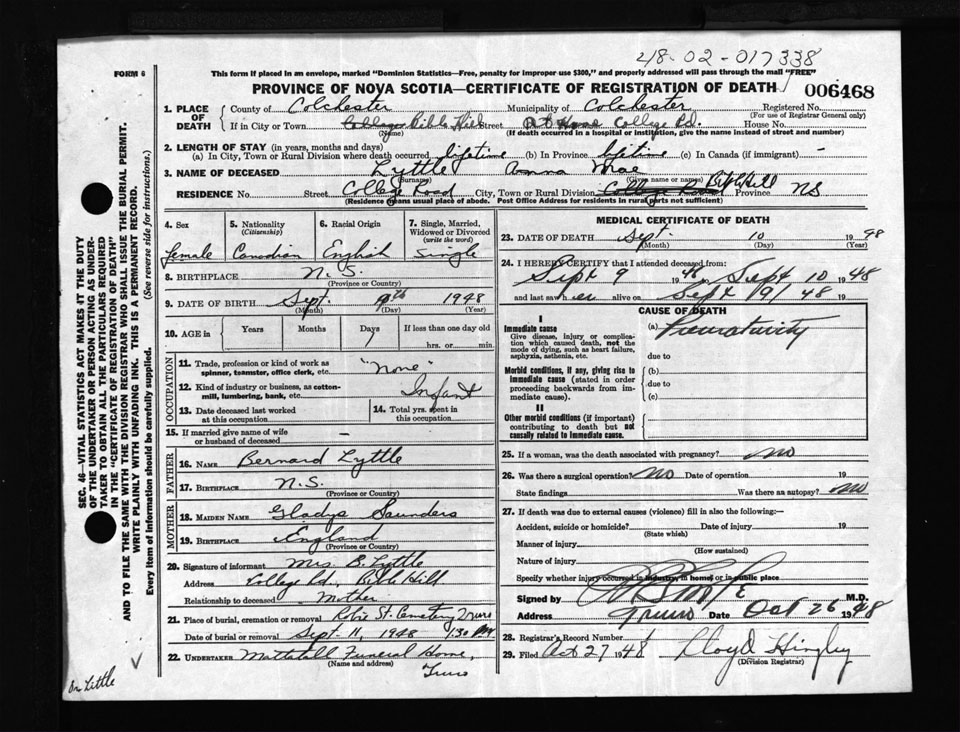 48-02-017338
FORM 6
This form if placed in an envelope, marked "Dominion Statistics—Free, penalty for improper use $300," and properly addressed will pass through the mail "FREE"
PROVINCE OF NOVA SCOTIA—CERTIFICATE OF REGISTRATION OF DEATH
006468
1. PLACE OF DEATH
County of Colchester Municipality of Colchester Registered No.
(For use of Registrar General only)
If in City or Town Bible Hill Street At Home College Rd. House No.
(Name) (If death occurred in a hospital or institution, give the name instead of street and number)
2. LENGTH OF STAY (in years, months and days)
(a) In City, Town or Rural Division where death occurred lifetime (b) In Province lifetime (c) In Canada (if immigrant) -
3. NAME OF DECEASED Lyttle Anna Mae
(Surname) (Given name or names)
RESIDENCE No. Street College Road City, Town or Rural Division Bible Hill Province NS
(Residence means usual place of abode. Post Office Address for residents in rural parts not sufficient)
4. Sex
female
5. Nationality
(Citizenship)
Canadian
6. Racial Origin
English
7. Single, Married, Widowed or Divorced
(write the word)
Single
8. BIRTHPLACE N.S.
(Province or Country)
9. DATE OF BIRTH Sept. 9th 1948
(Month) (Day) (Year)
10. AGE in Years Months Days If less than one day old
1
hrs. or min.
OCCUPATION
11. Trade, profession or kind of work as spinner, teamster, office clerk, etc. "None"
12. Kind of industry or business, as cotton-mill, lumbering, bank, etc. Infant
13. Date deceased last worked at this occupation
14. Total yrs. spent in this occupation.
15. If married give name of wife or husband of deceased -
FATHER
16. NAME Bernard Lyttle
17. BIRTHPLACE N.S.
(Province or Country)
MOTHER
18. MAIDEN NAME Gladys Saunders
19. BIRTHPLACE England
(Province or Country)
20. Signature of informant Mrs. B. Lyttle
Address College Rd, Bible Hill
Relationship to deceased Mother
21. Place of burial, cremation or removal Robie St. Cemetery Truro
Date of burial or removal Sept. 11, 1948 1:30 P.M.
22. UNDERTAKER Mattatall Funeral Home,
(Name and address)
Truro
MEDICAL CERTIFICATE OF DEATH
23. DATE OF DEATH Sept. 10 1948
(Month) (Day) (Year)
24. I HEREBY CERTIFY that I attended deceased from:
Sept 9 1948 to Sept 10 1948
and last saw her alive on Sept 9/ 48 19
CAUSE OF DEATH
I
Immediate cause
Give disease, injury or complication which caused death, not the mode of dying, such as heart failure, asphyxia, asthenia, etc.
(a) Prematurity
due to
Morbid conditions, if any, giving rise to immediate cause (stated in order proceeding backwards from immediate cause).
(b)
due to
(c)
II
Other morbid conditions (if important) contributing to death but not causally related to immediate cause.
25. If a woman, was the death associated with pregnancy? no
26. Was there a surgical operation? no Date of operation 19
State findings Was there an autopsy? no
27. If death was due to external causes (violence) fill in also the following:—
Accident, suicide or homicide? Date of injury 19
(State which)
Manner of injury
(How sustained)
Nature of injury
Specify whether injury occurred in industry, in home, or in public place
Signed by M.D.
Address Truro Date Oct 26 1948
28. Registrar's Record Number
29. Filed Oct 27 1948 Lloyd Hingley
(Division Registrar)
SEC. 46—VITAL STATISTICS ACT MAKES IT THE DUTY
OF THE UNDERTAKER OR PERSON ACTING AS UNDER-
TAKER TO OBTAIN ALL THE PARTICULARS REQUIRED
IN THE "CERTIFICATE OF REGISTRATION OF DEATH"
AND TO FILE THE SAME WITH THE DIVISION REGISTRAR WHO SHALL ISSUE THE BURIAL PERMIT.
WRITE PLAINLY WITH UNFADING INK. THIS IS A PERMANENT RECORD.
Every item of information should be carefully supplied. (See reverse side for instructions.)
or Little